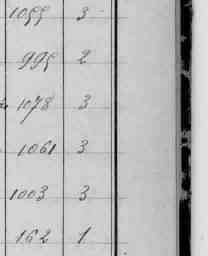 1055 3
995 2
1078 3
1061 3
1003 3
162 1